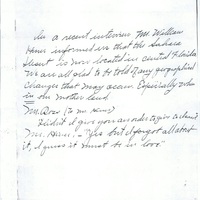 In a recent interview Mr. William
Hines informed us that the Sahara
Desert is now located in central Florida
We are all glad to be told of any geographical
changes that may occur. Especially when
in our mother land
Mr. (to Mr. Hines)
Didn't I give you an order to give
Mr. Hines, - "Yes but I forgot all about
it, I guess it must be in love."